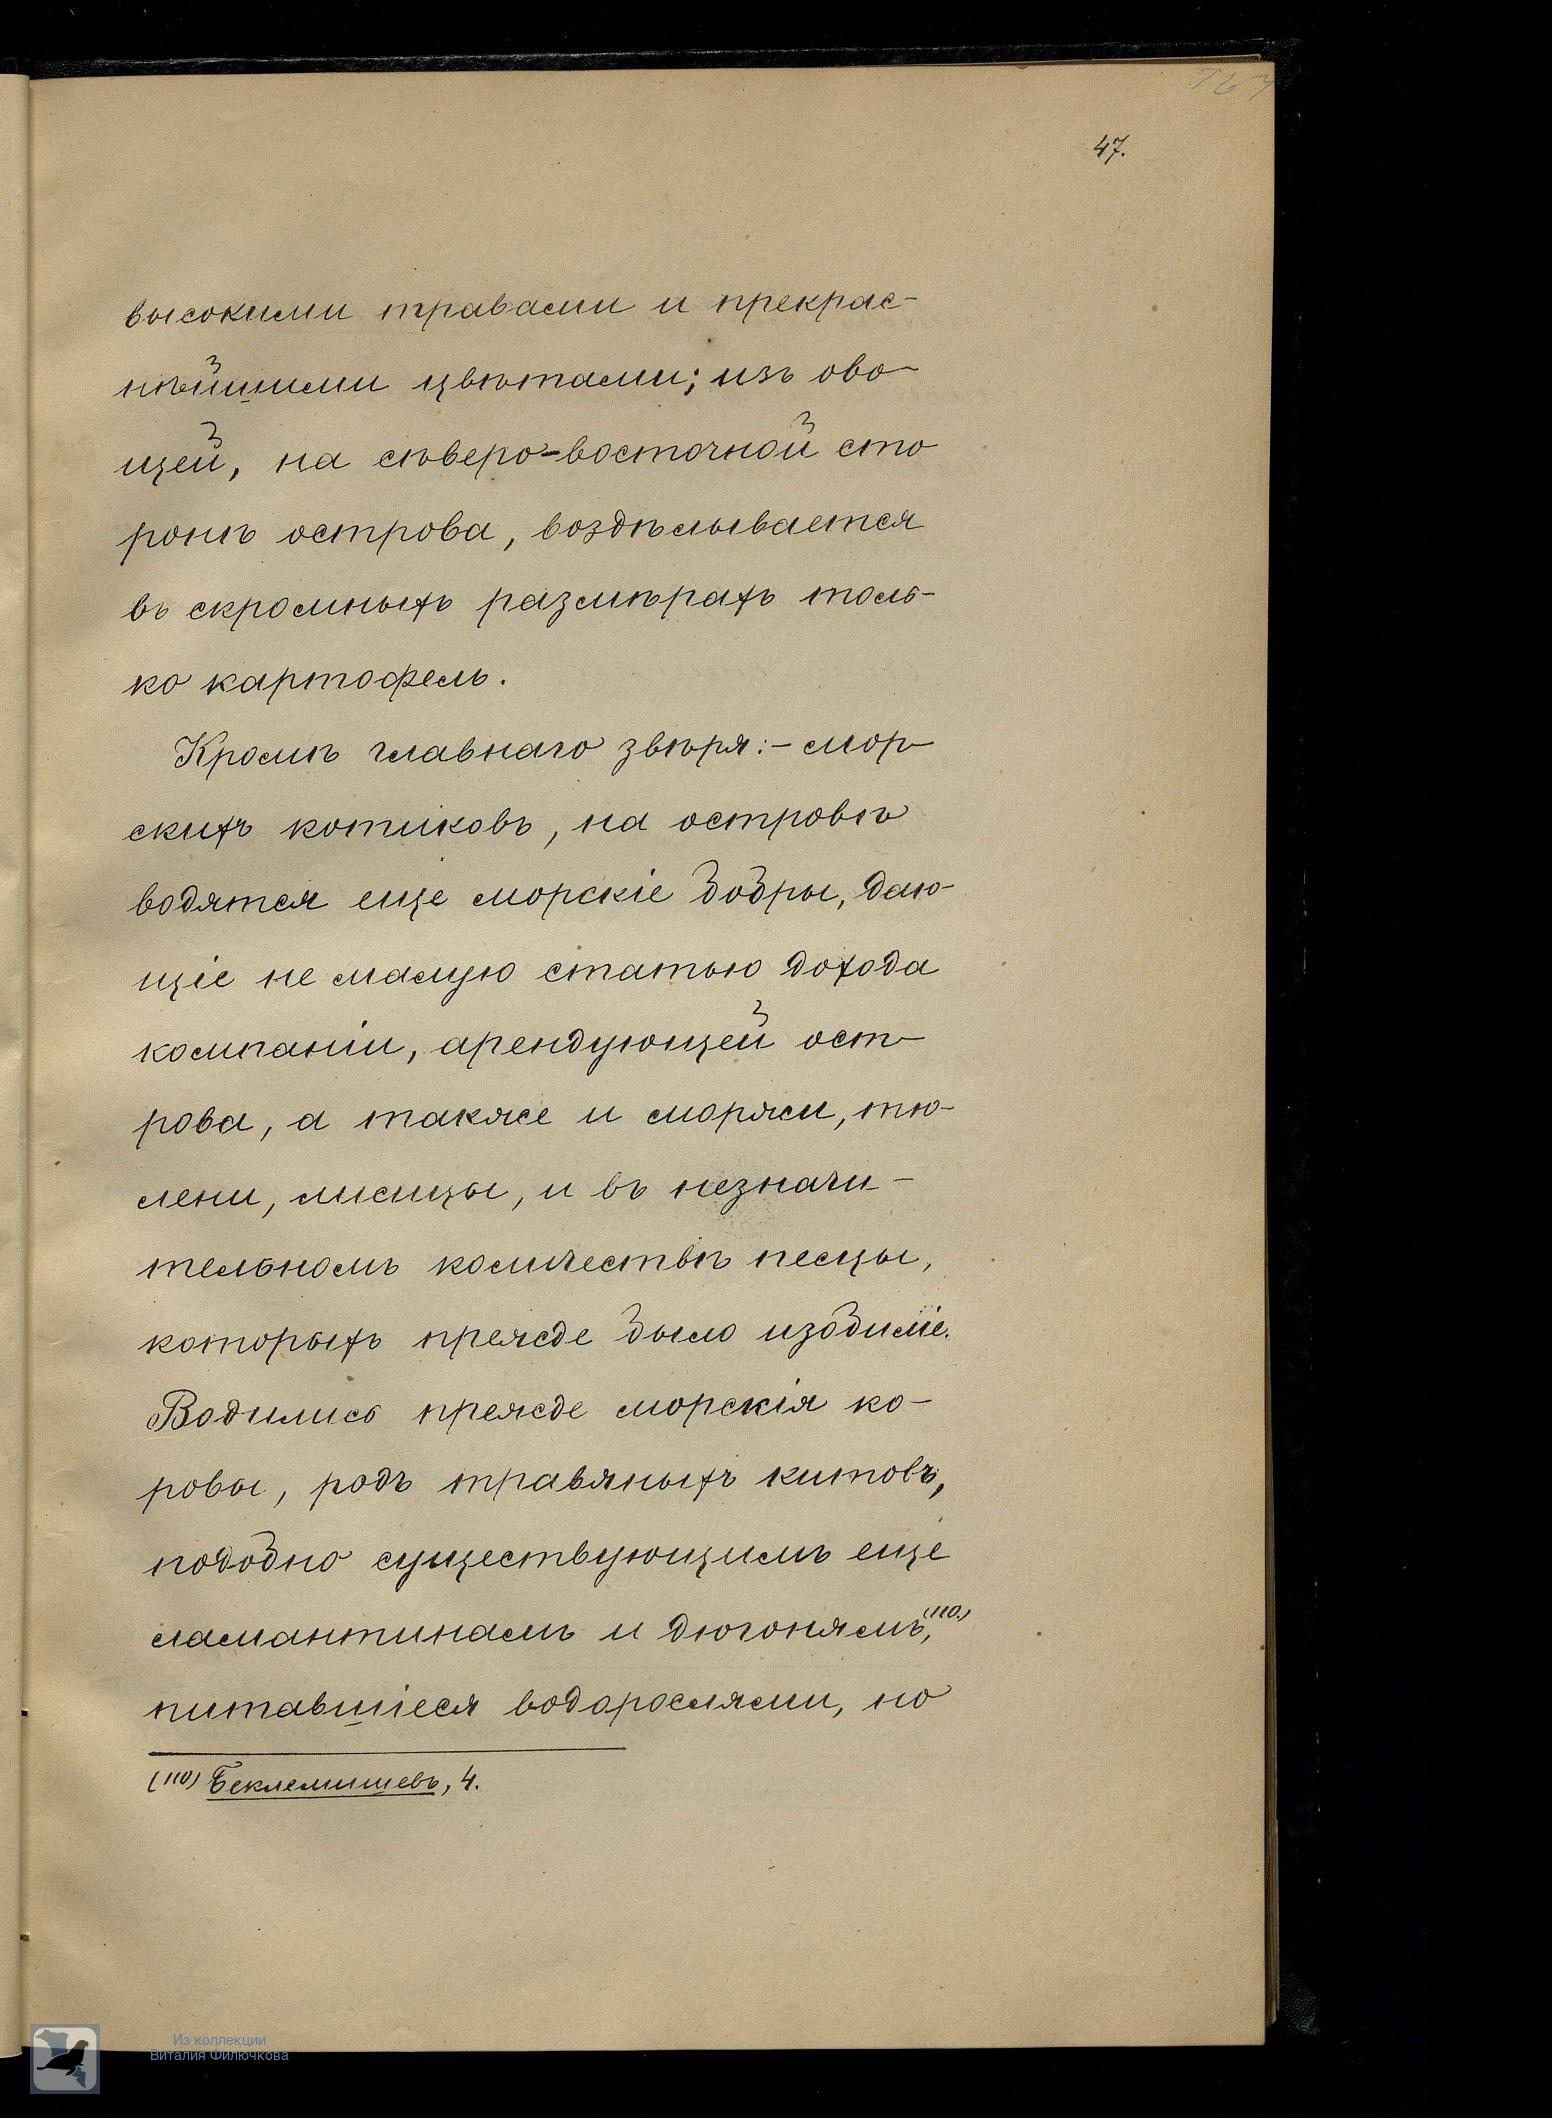 47.
высокими травами и прекрас-
нѣйшими цвѣтами; изъ ово-
щей, на сѣверо-восточной сто
ронѣ острова, воздѣлывается
въ скромныхъ размѣрахъ толь-
ко картофель.
Кромѣ главнаго звѣря:- мор-
скихъ котиковъ, на островѣ
водятся еще морскіе бобры, даю-
щіе не малую статью дохода
компаніи, арендующей ост-
рова, а также и моржи, тю-
лени, лисицы, и въ незначи-
тельномъ количествѣ песцы,
которыхъ прежде было изобиліе.
Водились прежде морскія ко-
ровы, родъ травяныхъ китовъ,
подобно существующимъ еще
ламантинамъ и дюгонямъ,(110.)
питавшіеся водорослями, но
(110) Беклемишевъ, 4.
Из коллекции
Виталия Филючкова